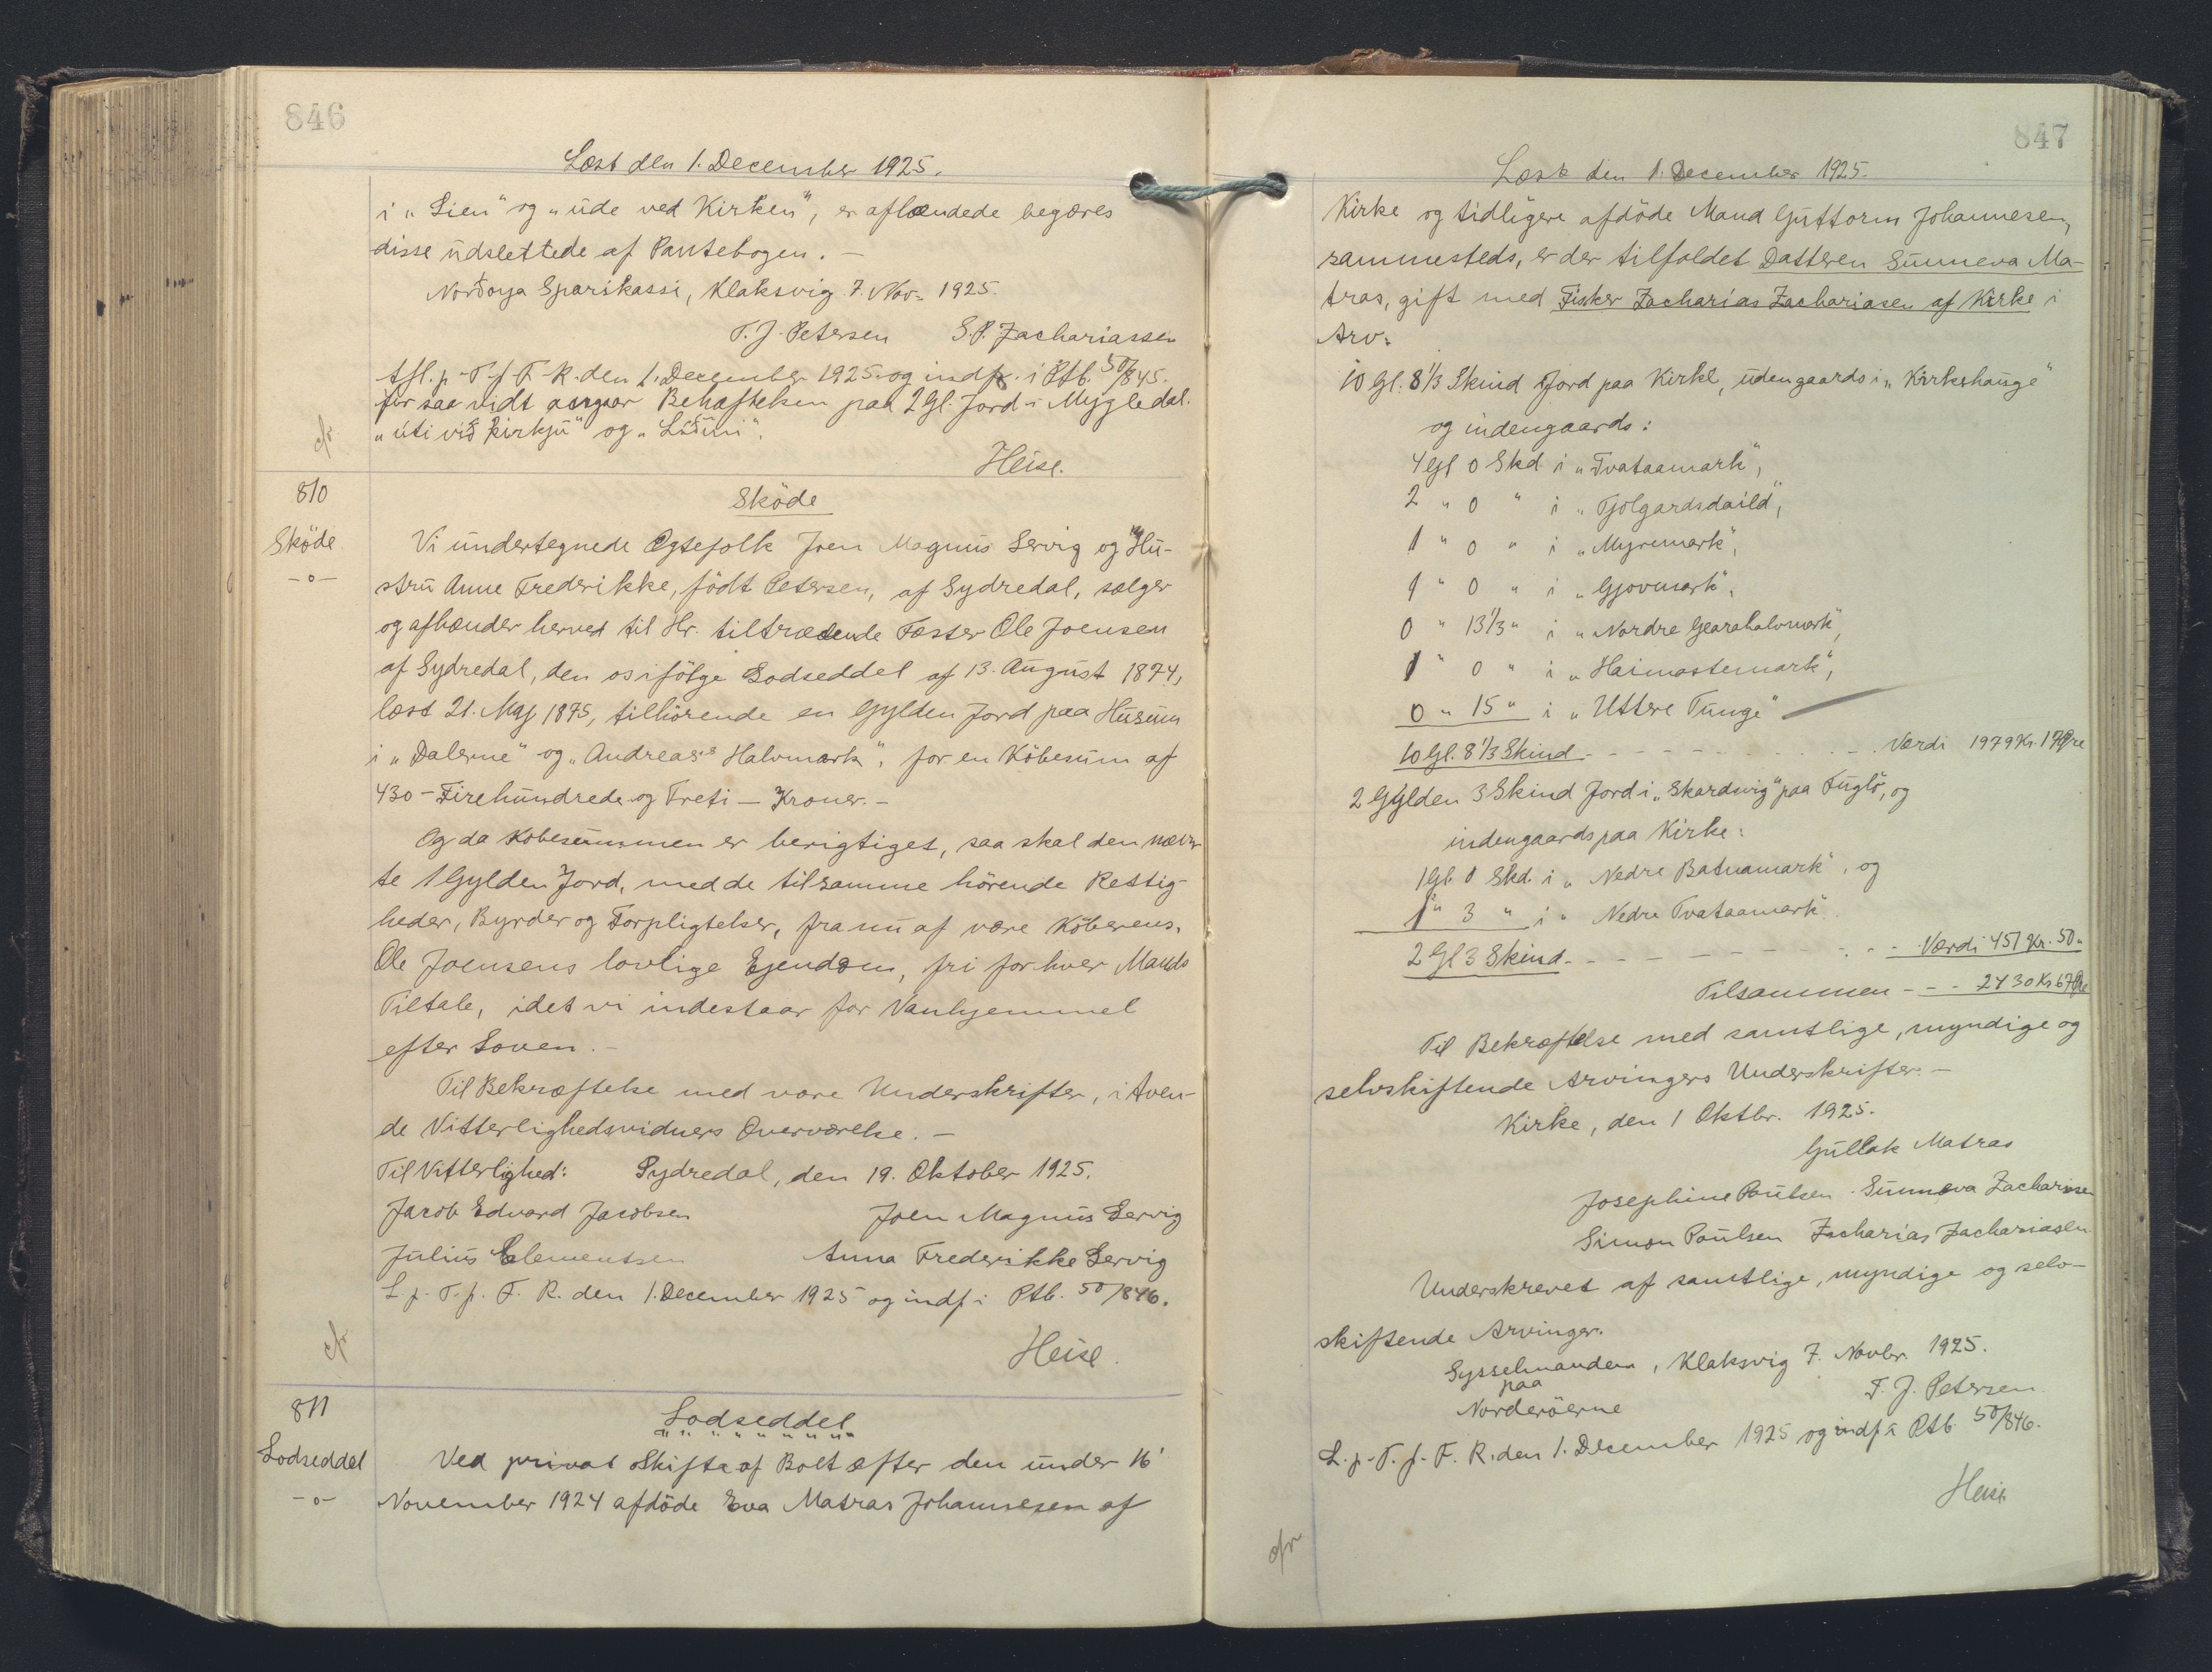 846
Læst den 1. December 1925.
i "Lien" og "ude ved Kirken", er afhændede begæres
disse udslettede af Pantebogen. —
Norðoya Sparikassi, Klaksvig 7. Nov. 1925.
T. J. Petersen S. P. Zachariassen
Afl. p. T. f. F. R. den 1. December 1925 og indf. i Ptb. 50/845.
for saa vidt angaar Behæftelsen paa 2 Gl. Jord i Mygledal.
"úti við kirkju" og
Heise.
810
Sköde
-o-
Sköde
Vi undertegnede Ægtefolk Joen Magnus Servig og Hu-
stru Anne Frederikke, födt Petersen, af Sydredal, sælger
og afhænder herved til Hr. tiltrædende Fæster Ole Joensen
af Sydredal, den os ifölge Lodseddel af 13. August 1874,
læst 21. Maj 1875, tilhörende en Gylden Jord paa Husum
i "Dalerne" og "Andreas's Halvmark", for en Köbesum af
430 - Firehundrede og Treti — Kroner. -
Og da Köbesummen er berigtiget, saa skal den nævn
te 1 Gylden Jord, med de tilsamme hörende Rettig-
heder, Byrder og Forpligtelser, fra nu af være Köberens,
Ole Joensens lovlige Ejendom, fri for hver Mands
Tiltale, idet vi indestaar for Vanhjemmel
efter Loven. -
Til Bekræftelse med vore Underskrifter, i
de Vitterlighedsvidners Overværelse. —
Til Vitterlighed: Sydredal, den 19. Oktober 1925.
Jacob Edvard Jacobsen Joen Magnus Servig
Julius Clementsen Anna Frederikke Servig
L. p. T. f. F. R. den 1. December 1925 og indf. i Ptb. 50/846.
Heise.
811
Lodseddel
-o-
Lodseddel
Ved privat Skifte af Boet efter den under 16'
November 1924 afdöde Eva Matras Johannesen af
847
Læst den 1. December 1925.
Kirke og tidligere afdöde Mand Guttorm Johannesen,
sammesteds, er der tilfaldet Datteren Sunneva Ma-
tras, gift med Fisker Zacharias Zachariasen af Kirke i
Arv:
10 Gl. 8 1/3 Skind Jord paa Kirke, udengaards i "Kirkehauge"
og indengaards:
4 Gl 0 Skd i "Tvataamark",
2 " 0 " i "Tjolgardsdaild",
1 " 0 " i "Myremark",
1 " 0 " i "Gjovmark",
0 " 13 1/3 " i "Nordre Gearahalvmark",
1 " 0 " i "Haimastemark",
0 " 15 " i "Uttere Tunge"
10 Gl. 8 1/3 Skind - - - - Værdi 1979 Kr. 17 Øre
2 Gylden 3 Skind Jord i "Skardsvig" paa Fuglö, og
indengaards paa Kirke:
1 Gl. 0 Skd. i "Nedre Batnamark", og
1 " 3 " i "Nedre Tvataamark".
2 Gl 3 Skind - - - - Værdi 451 Kr. 50 "
Tilsammen - - - 2430 Kr 67 Øre
Til Bekræftelse med samtlige, myndige og
selvskiftende Arvingers Underskrifter. —
Kirke, den 1 Oktbr. 1925.
Gullak Matras
Josephine Poulsen. Sunneva Zachariasen
Simon Poulsen Zacharias Zachariasen
Underskrevet af samtlige, myndige og selv-
skiftende Arvinger.
Sysselmanden, Klaksvig 7. Novbr. 1925.
paa
Norderöerne
T. J. Petersen
L. p. T. f. F. R. den 1. December 1925 og indf i Ptb. 50/846.
Heise